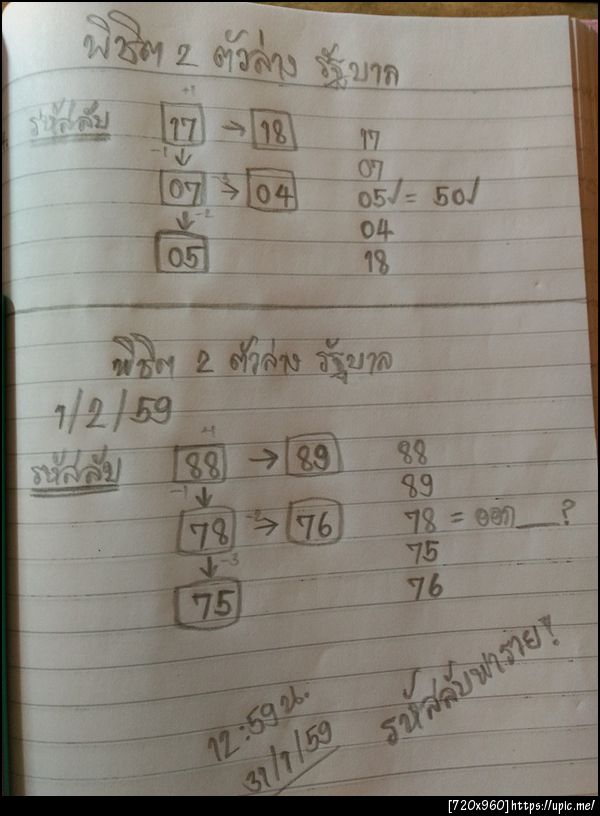 พิชิต 2 ตัวล่าง รัฐบาล
+1
รหัสลับ 17 → 18 17
-1 ↓ 07
07 -3 → 04 05✓ = 50✓
↓ -2 04
05 18
พิชิต 2 ตัวล่าง รัฐบาล
1/2/59
+1
รหัสลับ 88 → 89 88
-1 ↓ 89
78 -2 → 76 78 = ออก__?
↓ -3 75
75 76
12:59น. รหัสลับพารวย!
31/1/59
[720x960]https://upic.me/